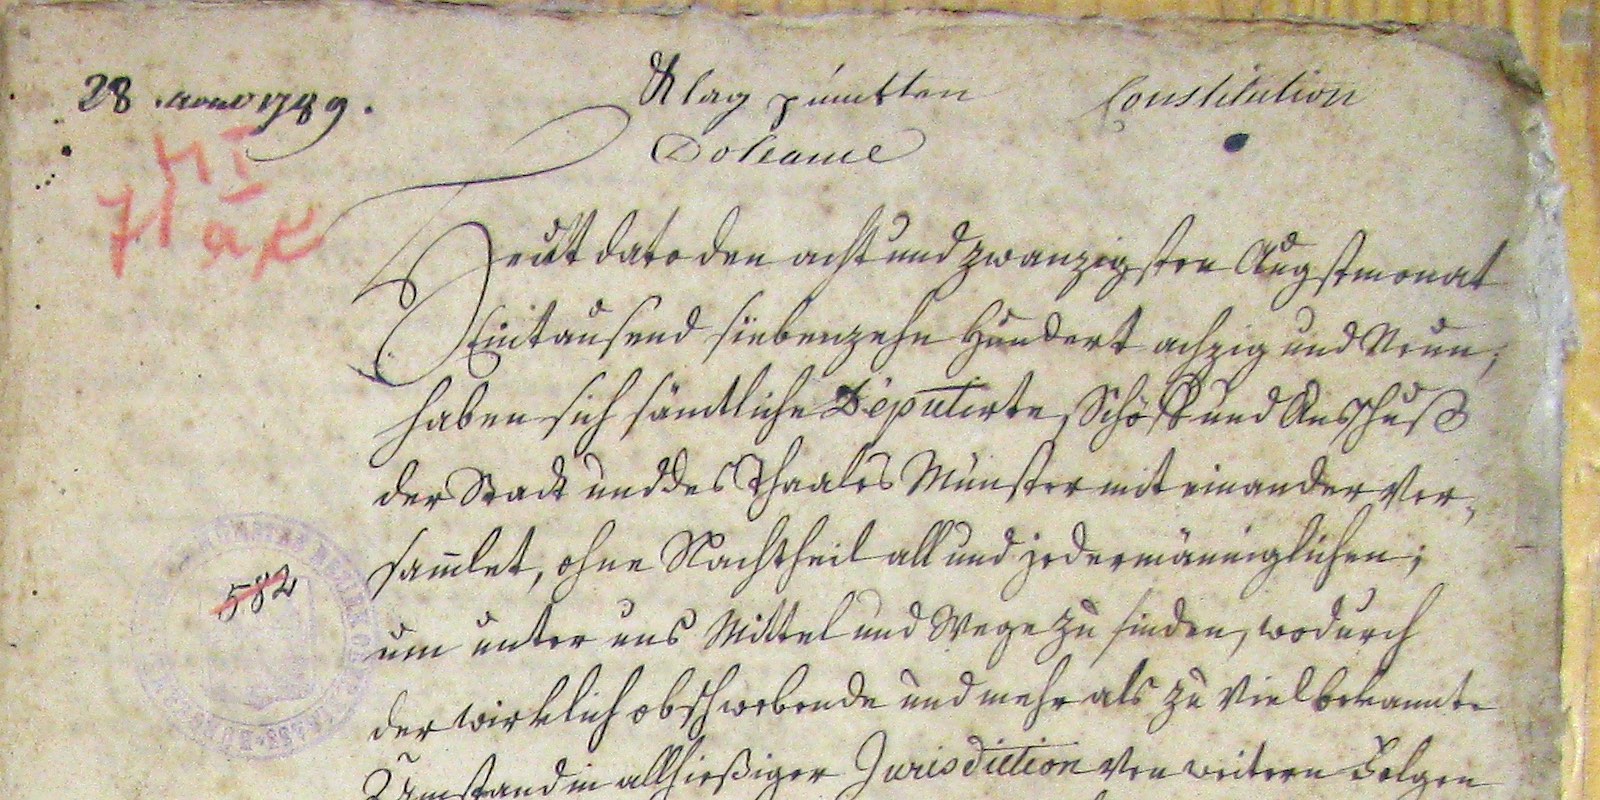 28 aout 1789.
Klag puncten
Constitution
Doleance
HI
7
582
Heutt dato den acht und zwanzigsten Augstmonat
Eintausend siebenzehn Hundert achzig und Neun,
haben sich sämtliche Deputirte, Schöff und Ausschuß
der Stadt und des Thaales Münster mit einander Ver-
samlet, ohne Nachtheil all und jedermänniglichen;
um unter uns Mittel und Wege zu finden, wodurch
der wirklich obschwebende und mehr als zu Viel bekannte
Zumstand in allhießiger Jurisdiction Von weitern Folgen